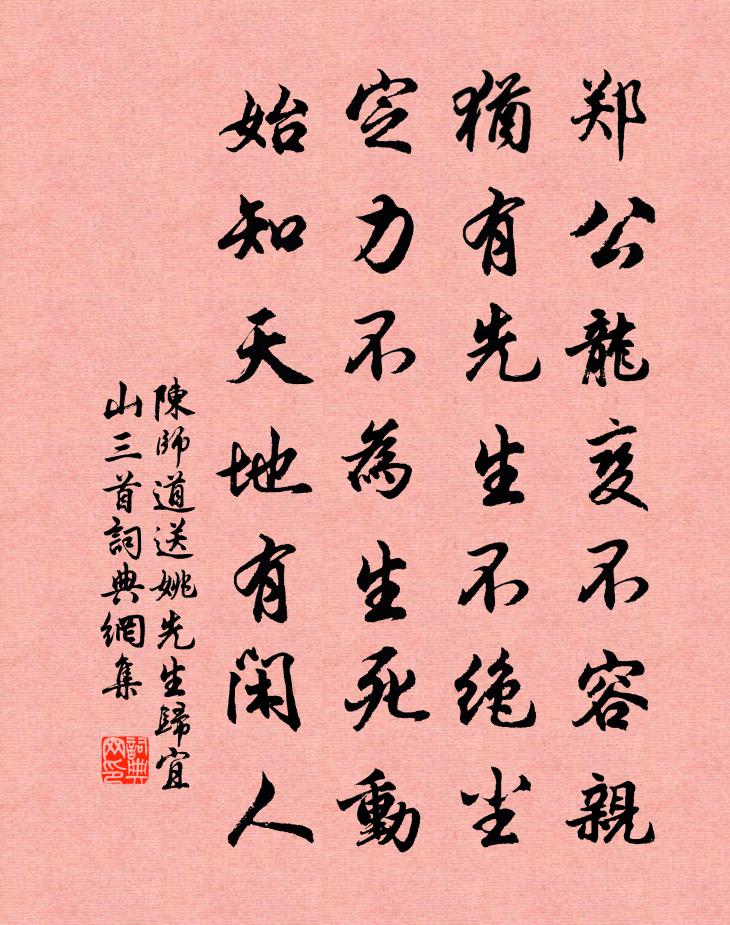 郑公龍变不容親
猶有先生不绝尘
定力不為生死動
始知天地有闲人
陳師道送姚先生歸宜
山三首詞典網集
詞典网印